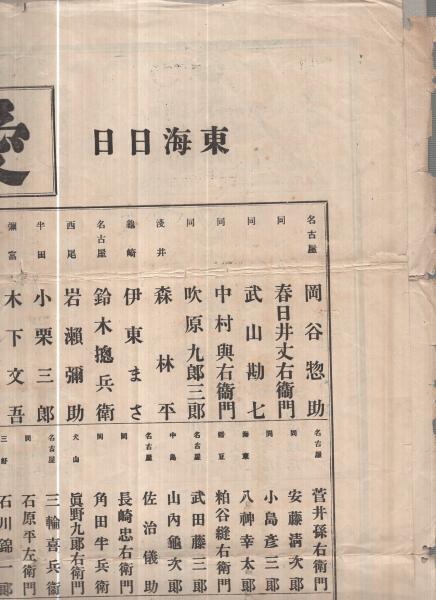 東海日日
愛
名古屋 岡谷惣助
同 春日井丈右衞門
同 武山勘七
同 中村與右衞門
同 吹原九郎三郎
淺井 森林平
龜崎 伊東まさ
名古屋 鈴木摠兵衞
西尾 岩瀨彌助
半田 小栗三郎
彌富 木下文吾
名古屋 菅井孫右衞門
同 安藤淸次郎
同 小島彥三郎
海東 八神幸太郎
粕谷縫右衞門
名古屋 武田藤三郎
中島 山內龜次郎
名古屋 佐治儀助
同 長崎忠右衞門
同 角田半兵衞
犬山 眞野九郎右衞門
名古屋 三輪喜兵衞
同 石原平左衞門
三好 石川錦一郎